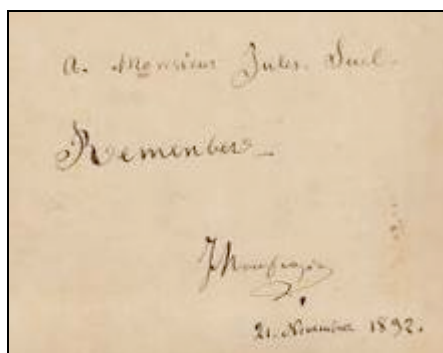 A. Monsieur Jules. Suel.
Remember_
21. Novembre 1892.